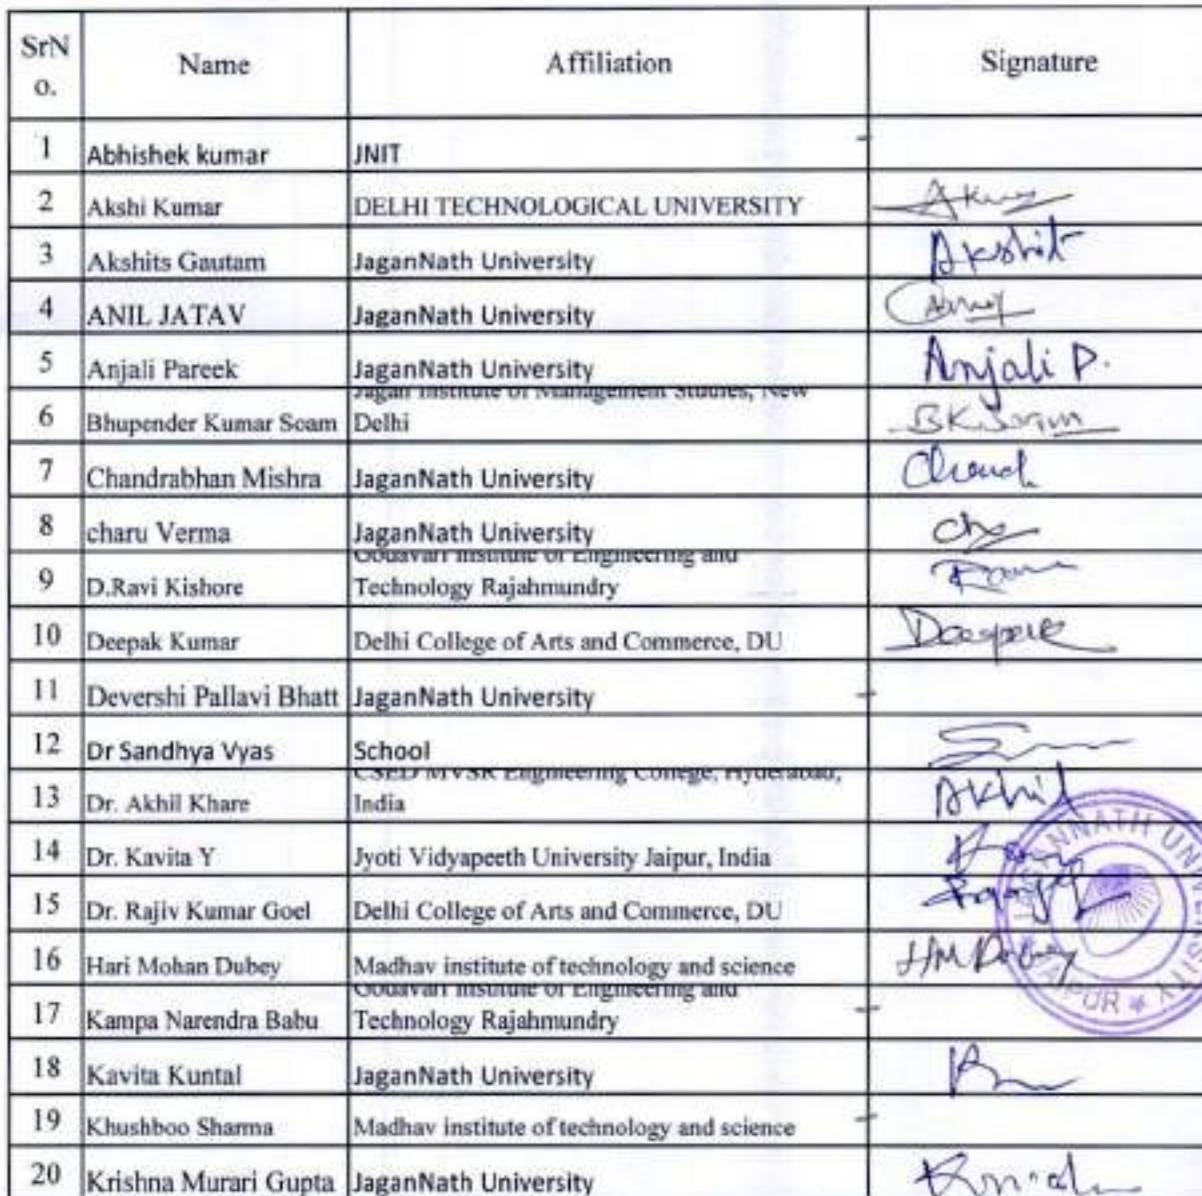 SrN
o.
Name
Affiliation
Signature
1 Abhishek kumar JNIT
2 Akshi Kumar DELHI TECHNOLOGICAL UNIVERSITY
3 Akshits Gautam JaganNath University Akshit
4 ANIL JATAV JaganNath University
5 Anjali Pareek JaganNath University Anjali P.
Jagan Institute of Management Studies, New
6 Bhupender Kumar Soam Delhi
7 Chandrabhan Mishra JaganNath University Chand
8 charu Verma JaganNath University
Godavari Institute of Engineering and
9 D.Ravi Kishore Technology Rajahmundry
10 Deepak Kumar Delhi College of Arts and Commerce, DU Deepak
11 Devershi Pallavi Bhatt JaganNath University
12 Dr Sandhya Vyas School
CSED MVSR Engineering College, Hyderabad,
13 Dr. Akhil Khare India Akhil
14 Dr. Kavita Y Jyoti Vidyapeeth University Jaipur, India
15 Dr. Rajiv Kumar Goel Delhi College of Arts and Commerce, DU
16 Hari Mohan Dubey Madhav institute of technology and science HMDubey
Godavari Institute of Engineering and
17 Kampa Narendra Babu Technology Rajahmundry
18 Kavita Kuntal JaganNath University
19 Khushboo Sharma Madhav institute of technology and science
20 Krishna Murari Gupta JaganNath University